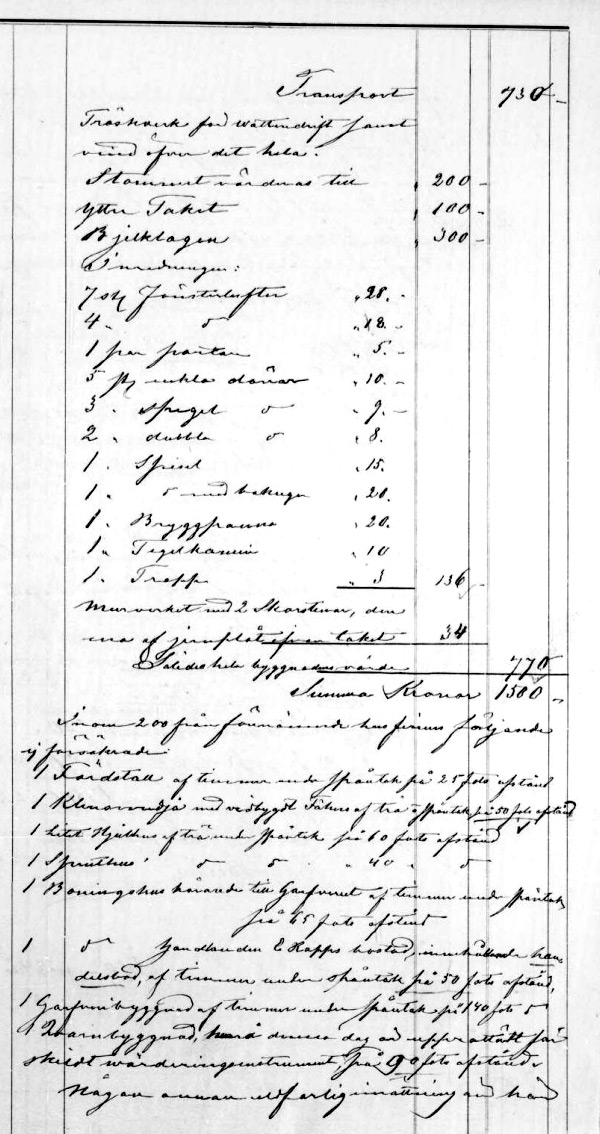 Transport 730 -
Tröskverk för wattendrift samt
vind öfver det hela.
Stommen värderas till " 200 -
yttre Taket " 100 -
Bjelklagen " 300 -
Inredningen:
7 st Fönsterlufter " 28. -
4 " d:o " 8. -
1 par " 5. -
5 st enkla dörrar " 10. -
3 " spegel d:o " 9. -
2 " dubbla d:o " 8.
1 " Spisel " 15.
1 " d:o med bakugn " 20.
1 " Bryggpanna " 20.
1 " Tegelkamin " 10
1 " Trapp " 3 136 -
Murverket med 2 Skorstenar, den
ena af jernplåt öfver taket 34
Således hela byggnadens värde 770
Summa Kronor 1500 "
Inom 200 från förenämnde hus finnes följande
ej försäkrade
1 Färdstall af timmer under spåntak på 25 fots afstånd
1 med vedbygdt Fähus af trä o spåntak på 50 fots afstånd
1 Litet Hjulhus af trä under spåntak på 60 fots afstånd
1 d:o d:o " 40 " d:o
1 Boningshus hörande till Garfveriet af timmer under spåntak
på 65 fots afstånd
1 d:o Handlanden E Kapps bostad, innehållande han-
delsbod, af timmer under spåntak på 50 fots afstånd,
1 Garfveribyggnad af timmer under spåntak på 140 fots d:o
1 Qvarnbyggnad, hvarå denna dag är upprättadt sär-
skildt wärderingsinstrument på 90 fots afstånd
Någon annan eldfarlig inrättning än här